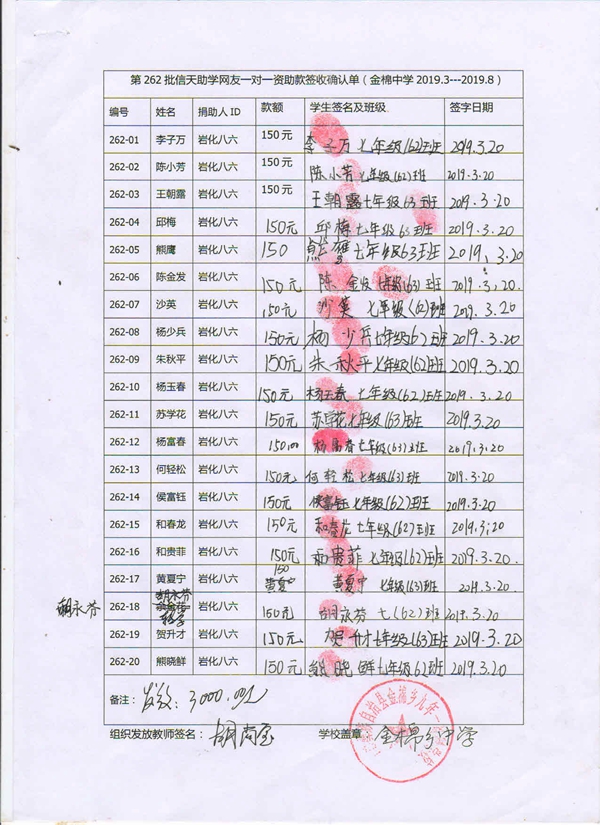 第262批信天助学网友一对一资助款签收确认单（金棉中学2019.3---2019.8）
编号 姓名 捐助人ID 款额 学生签名及班级 签字日期
262-01 李子万 岩化八六 150元 李子万 七年级(62)班 2019.3.20
262-02 陈小芳 岩化八六 150元 陈小芳七年级(62)班 2019.3.20
262-03 王朝露 岩化八六 150元 王朝露七年级63班 2019.3.20
262-04 邱梅 岩化八六 150元 邱梅七年级63班 2019.3.20
262-05 熊鹰 岩化八六 150 熊鹰七年级63班 2019.3.20
262-06 陈金发 岩化八六 150元 陈金发 七年级(63)班 2019.3.20.
262-07 沙英 岩化八六 150元 沙英 七年级(62)班 2019.3.20
262-08 杨少兵 岩化八六 150元 杨少兵七年级(62)班 2019.3.20
262-09 朱秋平 岩化八六 150元 朱秋平七年级(62)班 2019.3.20
262-10 杨玉春 岩化八六 150元 杨玉春七年级(62)班 2019.3.20
262-11 苏学花 岩化八六 150元 苏学花七年级(63)班 2019.3.20
262-12 杨富春 岩化八六 150.00 杨富春七年级(63)班 2019.3.20
262-13 何轻松 岩化八六 150元 何轻松七年级(63)班 2019.3.20
262-14 侯富钰 岩化八六 150元 侯富钰七年级(62)班 2019.3.20
262-15 和春龙 岩化八六 150元 和春龙七年级(62)班 2019.3.20
262-16 和贵菲 岩化八六 150元 和贵菲 七年级(62)班 2019.3.20.
262-17 黄夏宁 岩化八六 150 黄夏宁 黄夏宁 七年级(63)班 2019.3.20
胡永芬 262-18 胡永芬 岩化八六 150元 胡永芬 七(62)班 2019.3.20
262-19 贺升才 岩化八六 150元 贺升才七年级(63)班 2019.3.20
262-20 熊晓鲜 岩化八六 150元 熊晓鲜七年级62班 2019.3.20
备注： 发放：3000.00元
组织发放教师签名： 学校盖章： 金棉乡中学